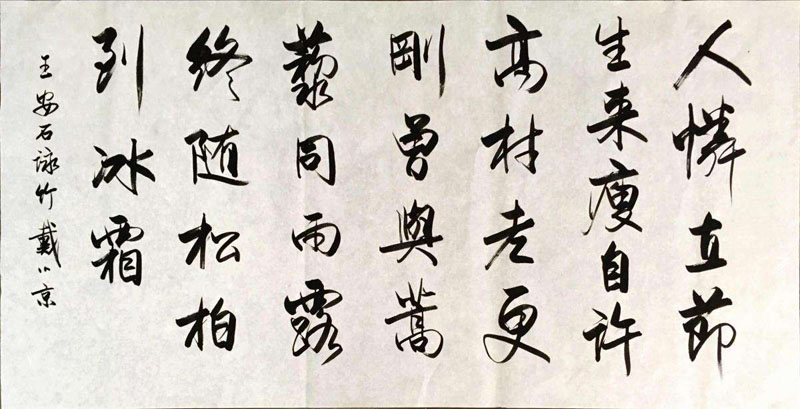 人憐直節
生来瘦自許
高材老更
剛曾與蒿
藜同雨露
終随松柏
到冰霜
王安石詠竹戴小京